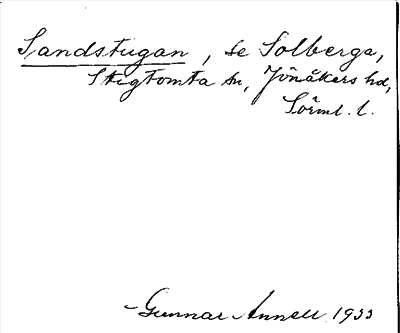 Sandstugan, se Solberga,
Stigtomta sn, Jönåkers hd,
Sörml. l.
Gunnar Annell 1933